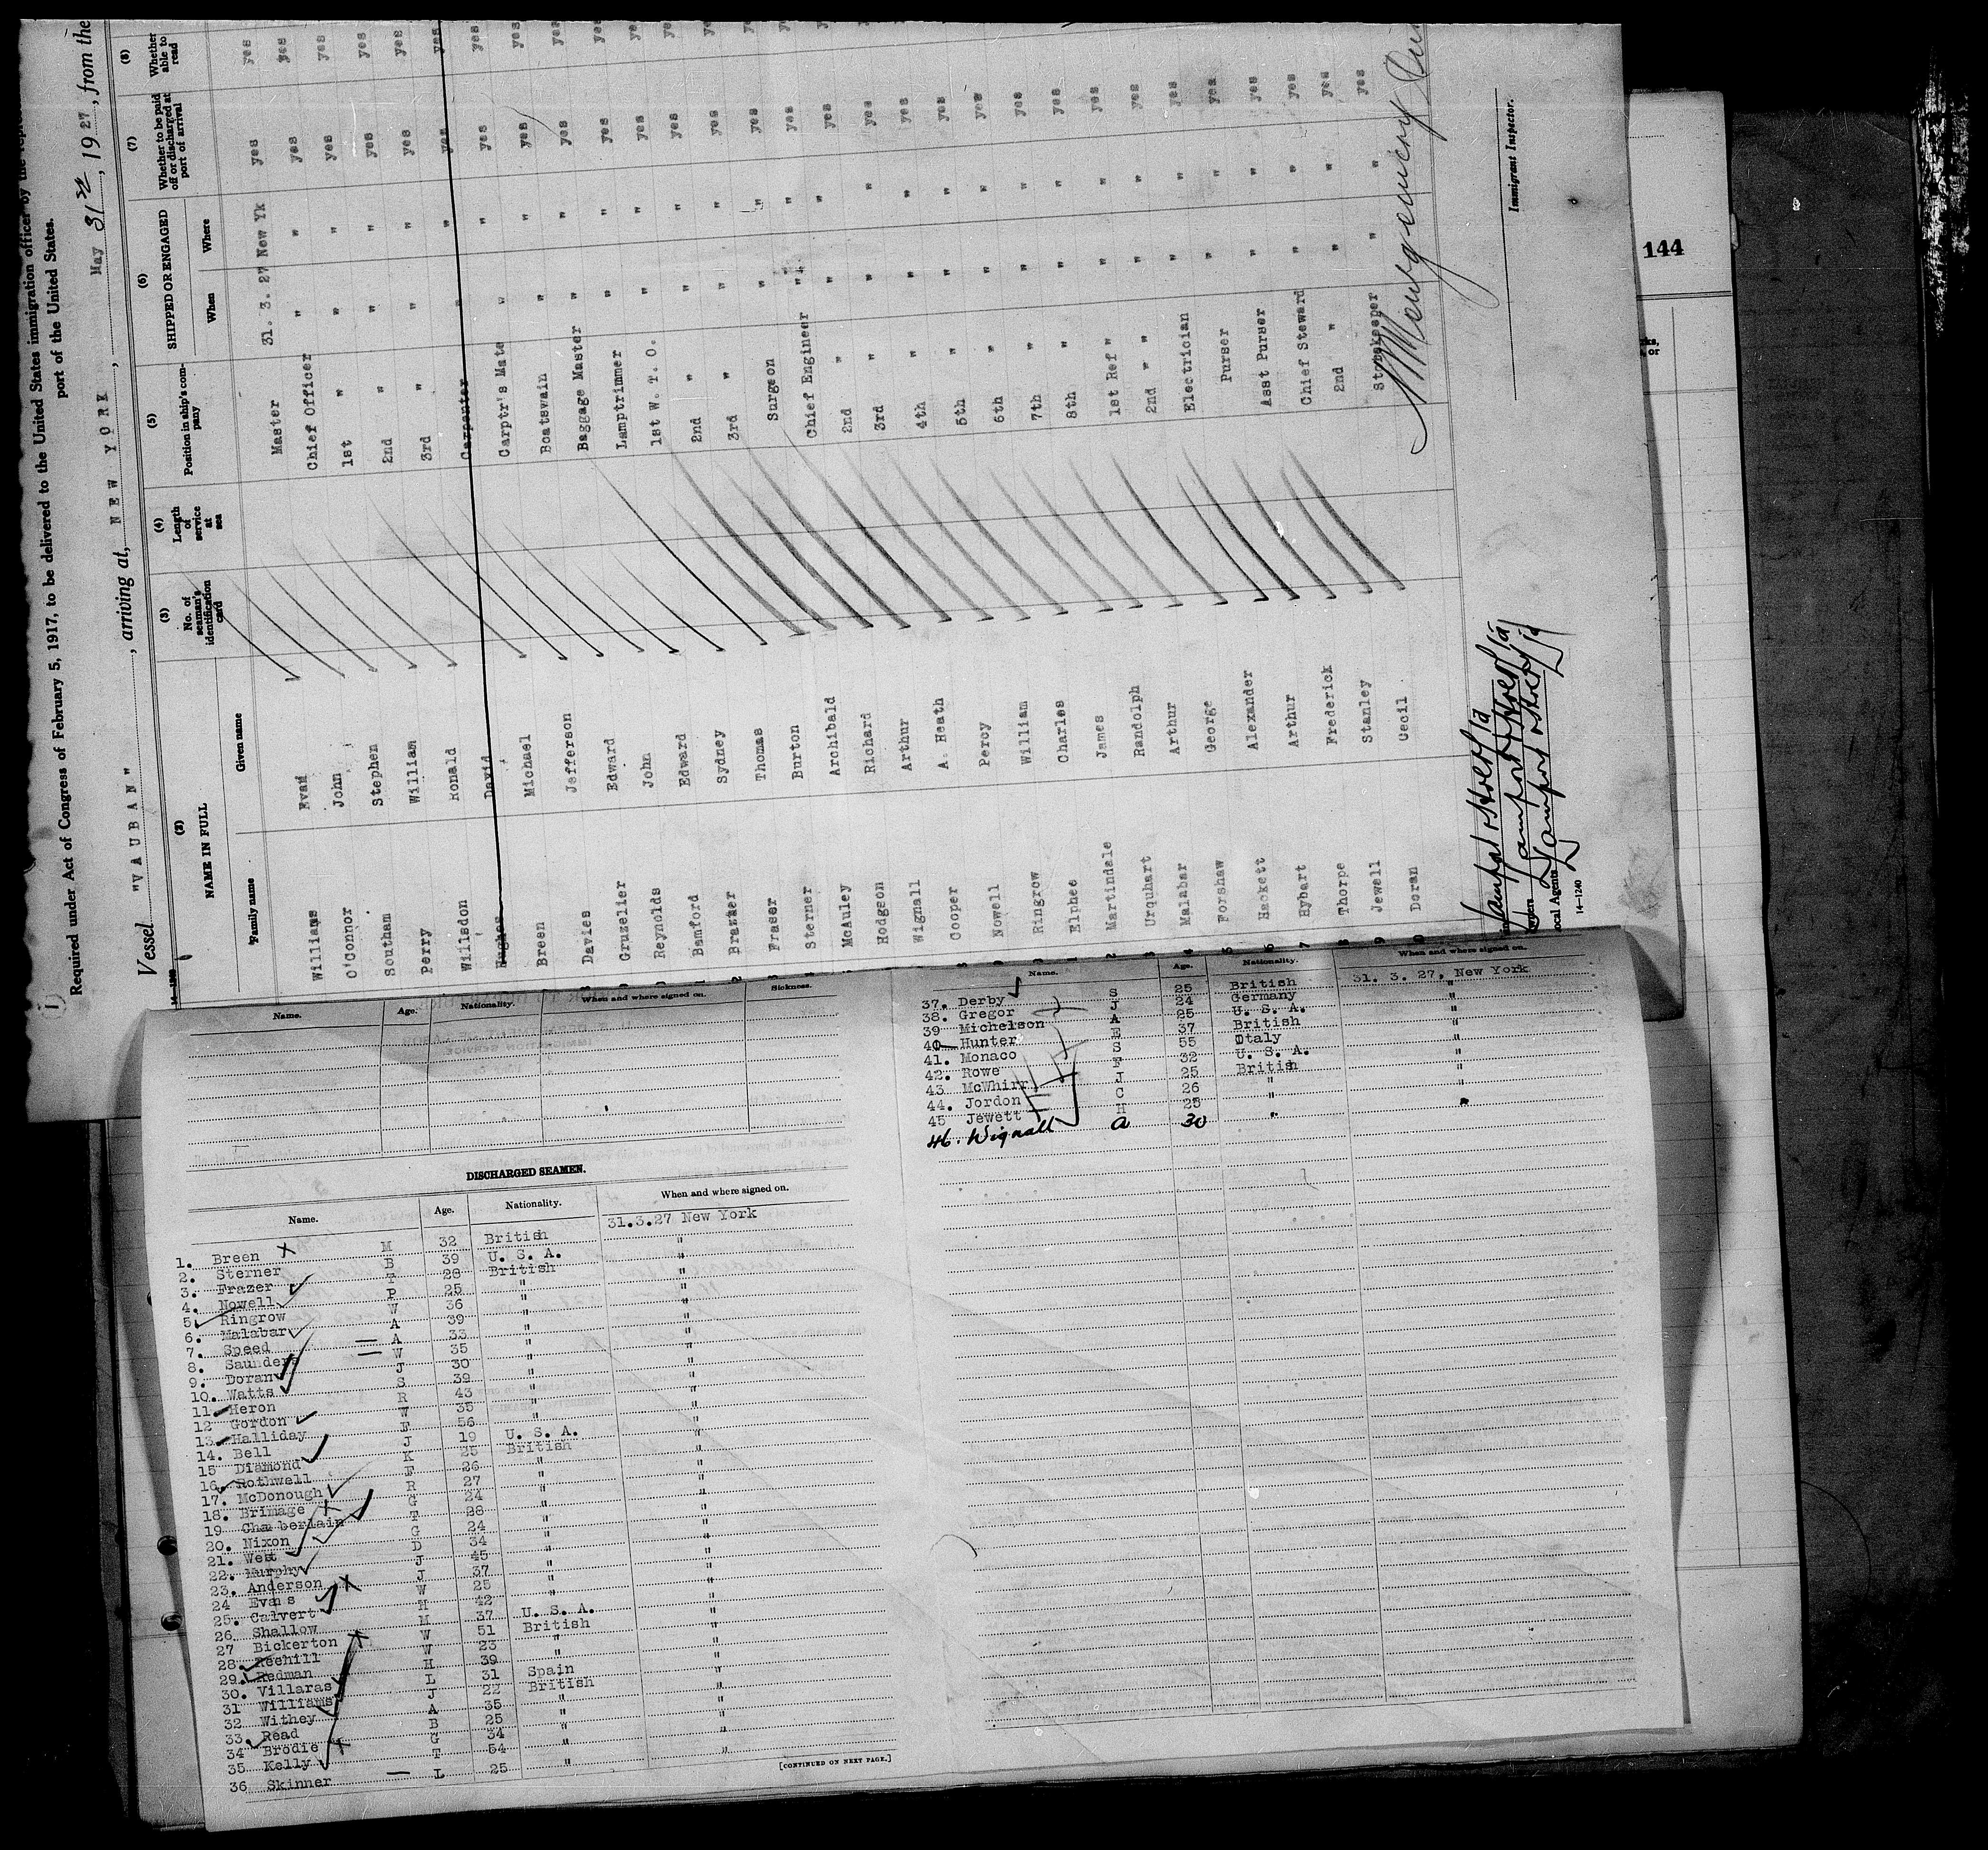 Required under Act of Congress of February 5, 1917, to be delivered to the United States immigration officer by the
port of the United States.
Vessel "VAUBAN", arriving at, NEW YORK, May 31st, 1927, from the
(2) NAME IN FULL
Family name Given name
(3) No. of seaman's identification card
(4) Length of service at sea
(5) Position in ship's company
(6) SHIPPED OR ENGAGED
When Where
(7) Whether to be paid off or discharged at port of arrival
(8) Whether able to read
Williams Evan Master 31. 3. 27 New Yk yes yes
O'Connor John Chief Officer " " yes yes
Southam Stephen 1st " " " yes yes
Perry William 2nd " " " yes yes
Willsdon Ronald 3rd " " " yes yes
Hughes David Carpenter " " yes yes
Breen Michael Carptr's Mate " " yes yes
Davies Jefferson Boatswain " " yes yes
Gruzelier Edward Baggage Master " " yes yes
Reynolds John Lamptrimmer " " yes yes
Bamford Edward 1st W. T. O. " " yes yes
Brazier Sydney 2nd " " " yes yes
Fraser Thomas 3rd " " " yes yes
Sterner Burton Surgeon " " yes yes
McAuley Archibald Chief Engineer " " yes
Hodgson Richard 2nd " " " yes
Wignall Arthur 3rd " " " yes
Cooper A. Heath 4th " " " yes
Nowell Percy 5th " " " yes
Ringrow William 6th " " " yes
Elphee Charles 7th " " " yes
Martindale James 8th " " " yes
Urquhart Randolph 1st Ref " " " yes
Malabar Arthur 2nd " " " " yes
Forshaw George Electrician " " yes
Hackett Alexander Purser " " yes
Hybart Arthur Asst Purser " " yes
Thorpe Frederick Chief Steward " " yes
Jewell Stanley 2nd " " " yes
Doran Cecil Storekeeper " " yes
Lamport & Holt Ld
Lamport & Holt Ld
Lamport & Holt Ld
Local Agents
14—1240
Immigrant Inspector.
144
Name. Age. Nationality. When and where signed on. Sickness.
DISCHARGED SEAMEN.
Name. Age. Nationality. When and where signed on.
1. Breen M 32 British 31.3.27 New York
2. Sterner B 39 U. S. A. "
3. Frazer T 28 British "
4. Nowell P 25 " "
5. Ringrow W 36 " "
6. Malabar A 39 " "
7. Speed A 33 " "
8. Saunders W 35 " "
9. Doran J 30 " "
10. Watts S 39 " "
11. Heron R 43 " "
12 Gordon W 35 " "
13. Halliday F 56 " "
14. Bell J 19 U. S. A. "
15 Diamond K 25 British "
16. Rothwell F 26 " "
17. McDonough R 27 " "
18. Brimage G 24 " "
19 Chamberlain T 28 " "
20. Nixon G 24 " "
21. West D 34 " "
22. Murphy J 45 " "
23. Anderson J 37 " "
24 Evans W 25 " "
25. Calvert H 42 " "
26. Shallow M 37 U. S. A. "
27 Bickerton W 51 British "
28. Reehill W 23 " "
29. Redman H 39 " "
30. Villaras L 31 Spain "
31 Williams J 22 British "
32 Withey A 35 " "
33. Read B 25 " "
34 Brodie G 34 " "
35 Kelly T 54 " "
36 Skinner L 25 " "
[CONTINUED ON NEXT PAGE.]
Name. Age. Nationality. When and where signed on.
37. Derby S 25 British 31. 3. 27, New York
38. Gregor J 24 Germany "
39 Michelson A 25 U. S. A. "
40 Hunter E 37 British "
41. Monaco S 55 Italy "
42. Rowe 32 U. S. A. "
43. McWhirr J 25 British "
44. Jordon C 26 " "
45 Jewett H 25 " "
46. Wignall A 30